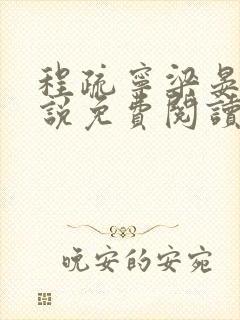 程疏寧梁晏
說免費閱讀
晚安的安宛